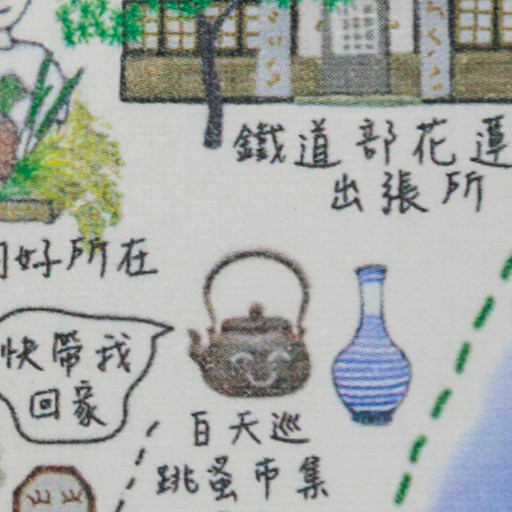 鐵道部花蓮
出張所
好所在
快帶我
回家
百天巡
跳蚤市集